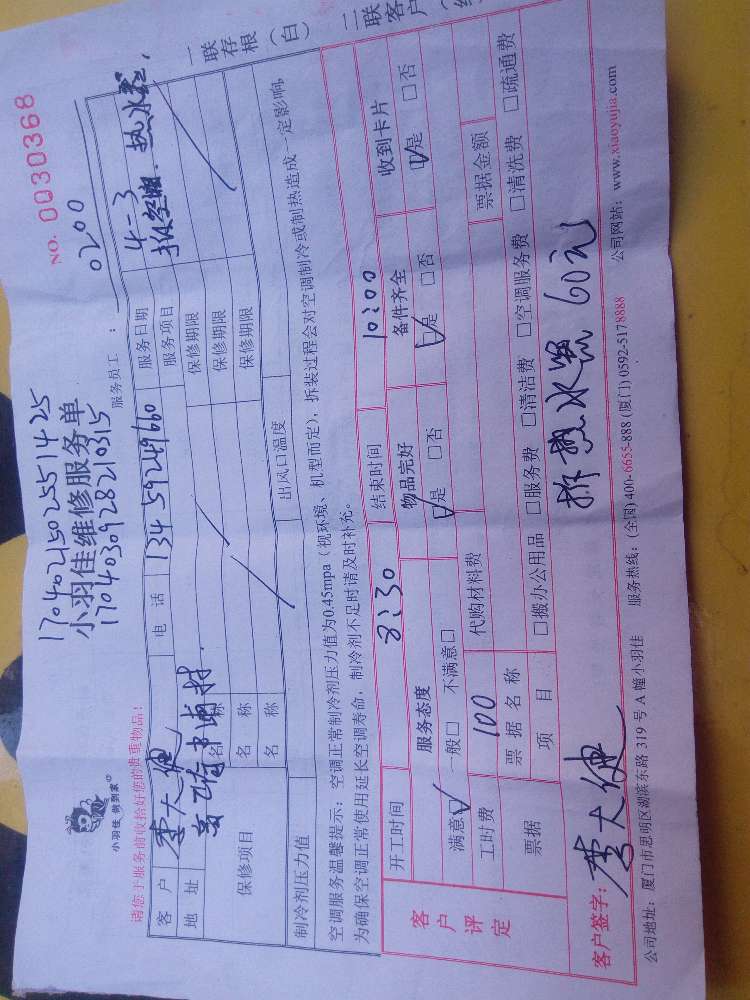 NO. 0030368
17040215025551425
小羽佳维修服务单
1704030928210315
小羽佳 做到家
请您于服务前收拾好您的贵重物品!
服务员工: 0200
客户 李大健 电话 13459249660 服务日期 4-3
地址 服务项目 拆空调.热水器.
保修项目
名称 保修期限
名称 保修期限
名称 保修期限
制冷剂压力值 出风口温度
空调服务温馨提示:空调正常制冷剂压力值为0.45mpa(视环境、机型而定),拆装过程会对空调制冷或制热造成一定影响,
为确保空调正常使用延长空调寿命,制冷剂不足时请及时补充。
一联存根(白)
二联客户
客户评定
开工时间 8:30 结束时间 10:00
服务态度 物品完好 备件齐全 收到卡片
满意☑ 一般□ 不满意□ ☑是 □否 ☑是 □否 ☑是 □否
工时费 100 代购材料费 票据金额
票据 票据名称
项目 □搬办公用品 □服务费 □清洁费 □空调服务费 □清洗费 □疏通费
客户签字: 李大健 拆热水器60元
公司地址:厦门市思明区湖滨东路 319 号 A 幢小羽佳 服务热线:(全国)400-6655-888 (厦门) 0592-5178888 公司网站:www.xiaoyujia.com